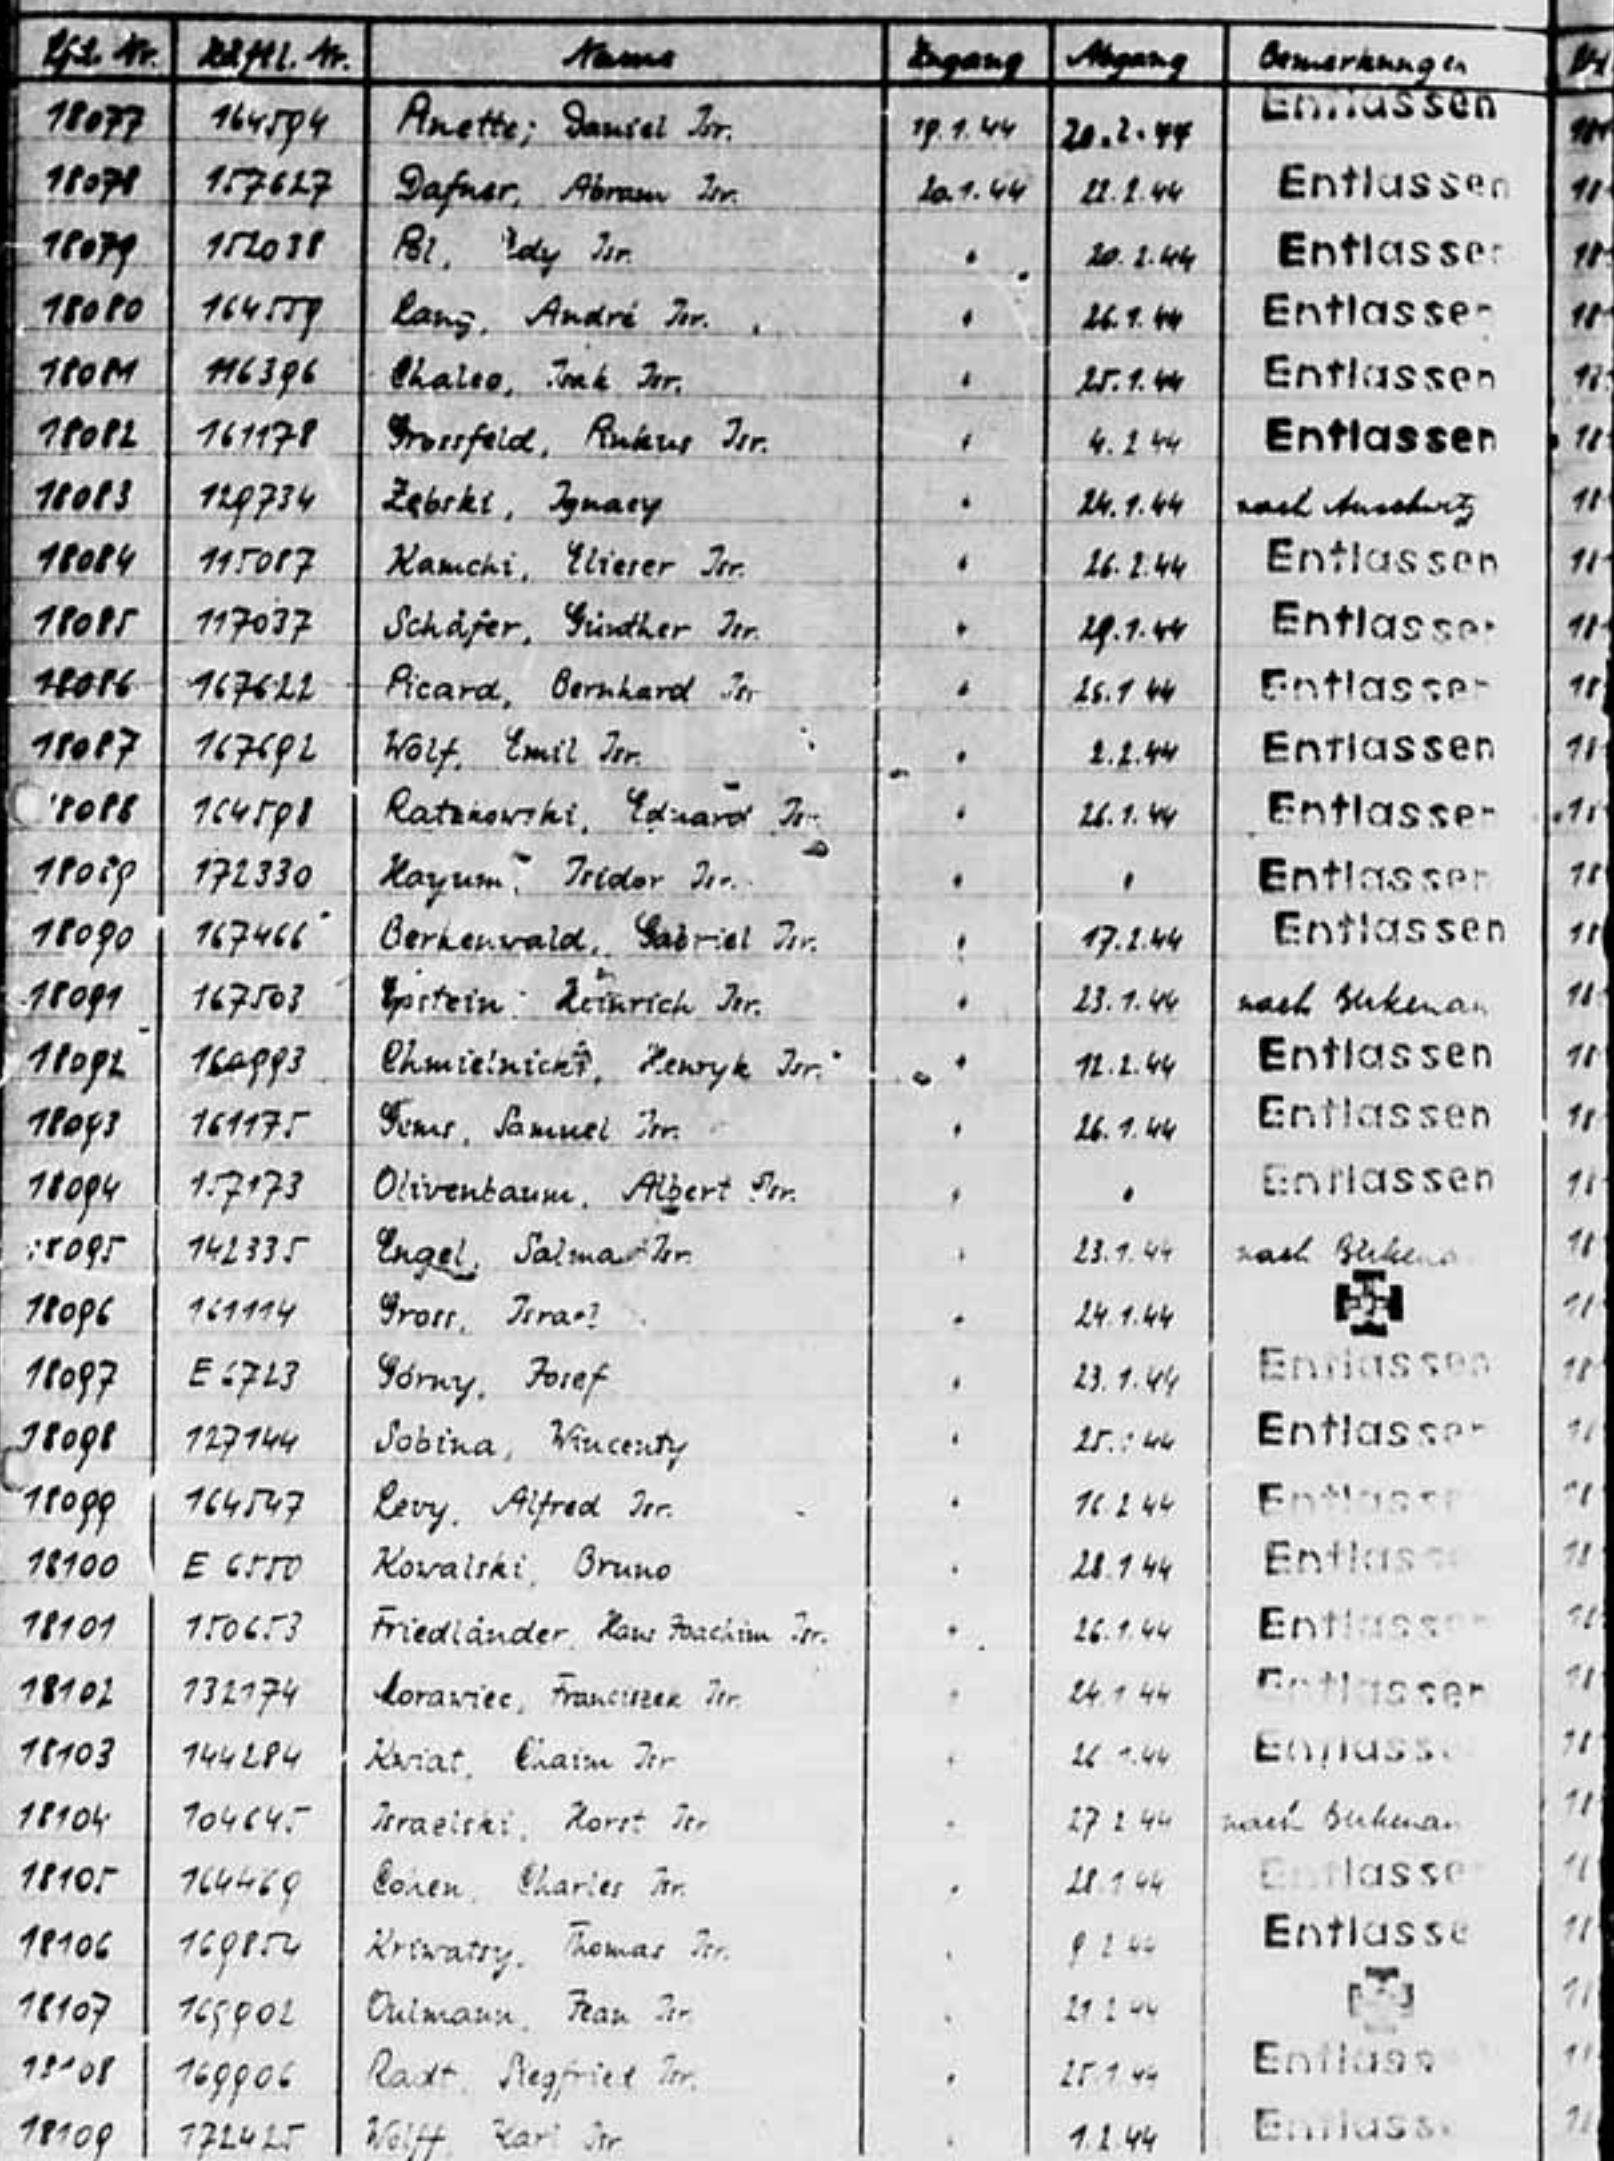 Lfd. Nr. Häftl. Nr. Name Zugang Abgang Bemerkungen
18077 164594 Anette; Daniel Isr. 19.1.44 20.2.44 Entlassen
18078 157627 Dafner, Abram Isr. 20.1.44 22.2.44 Entlassen
18079 152038 Pol, Isr. " 20.2.44 Entlassen
18080 164559 Lang, André Isr. " 26.1.44 Entlassen
18081 116396 Chaleo, Isak Isr. " 25.1.44 Entlassen
18082 161178 Grossfeld, Isr. " 4.2.44 Entlassen
18083 129734 Zębski, Ignacy " 24.1.44 nach Auschwitz
18084 115087 Kamchi, Elieser Isr. " 26.2.44 Entlassen
18085 117037 Schäfer, Günther Isr. " 29.1.44 Entlassen
18086 167622 Picard, Bernhard Isr " 26.1.44 Entlassen
18087 167692 Wolf, Emil Isr. " 2.2.44 Entlassen
18088 164598 Ratakowski, Eduard Isr. " 26.1.44 Entlassen
18089 172330 Hayum, Isidor Isr. " " Entlassen
18090 167466 Berkenwald, Gabriel Isr. " 17.2.44 Entlassen
18091 167503 Epstein, Heinrich Isr. " 23.1.44 nach Birkenau
18092 160993 Chmielnicki, Henryk Isr. " 12.2.44 Entlassen
18093 161175 Samuel Isr. " 26.1.44 Entlassen
18094 157173 Olivenbaum, Albert Isr. " " Entlassen
18095 142335 Engel, Isr. " 23.1.44 nach Birkenau
18096 161114 Gross, Israel " 24.1.44
18097 E 6723 Górny, Josef " 23.1.44 Entlassen
18098 127144 Sobina, Wincenty " 25.1.44 Entlassen
18099 164547 Levy, Alfred Isr. " 16.2.44 Entlassen
18100 E 6550 Kowalski, Bruno " 28.1.44 Entlassen
18101 150653 Friedländer, Hans Joachim Isr. " 26.1.44 Entlassen
18102 132174 Morawiec, Franciszek Isr. " 24.1.44 Entlassen
18103 144284 Kwiat, Chaim Isr " 26.1.44 Entlassen
18104 104645 Israelski, Horst Isr " 27.2.44 nach Birkenau
18105 164469 Cohen, Charles Isr. " 28.1.44 Entlassen
18106 169854 Kriwatsy, Thomas Isr. " 9.2.44 Entlassen
18107 169902 Oulmann, Jean Isr. " 21.2.44
18108 169906 Radt, Siegfried Isr. " 25.1.44 Entlassen
18109 172425 Wolff, Karl Isr " 1.2.44 Entlassen